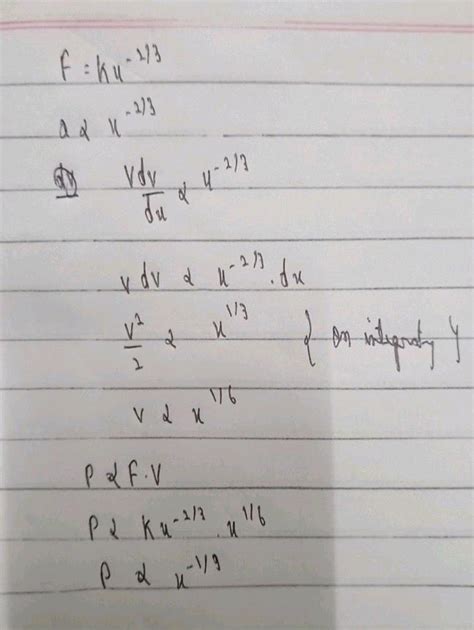 F = Kx^-2/3
a α x^-2/3
v dv/dx α x^-2/3
v dv α x^-2/3 . dx
v²/2 α x^1/3 { on integrating }
v α x^1/6
P α F.V
P α Kx^-2/3 . x^1/6
P α x^-1/2